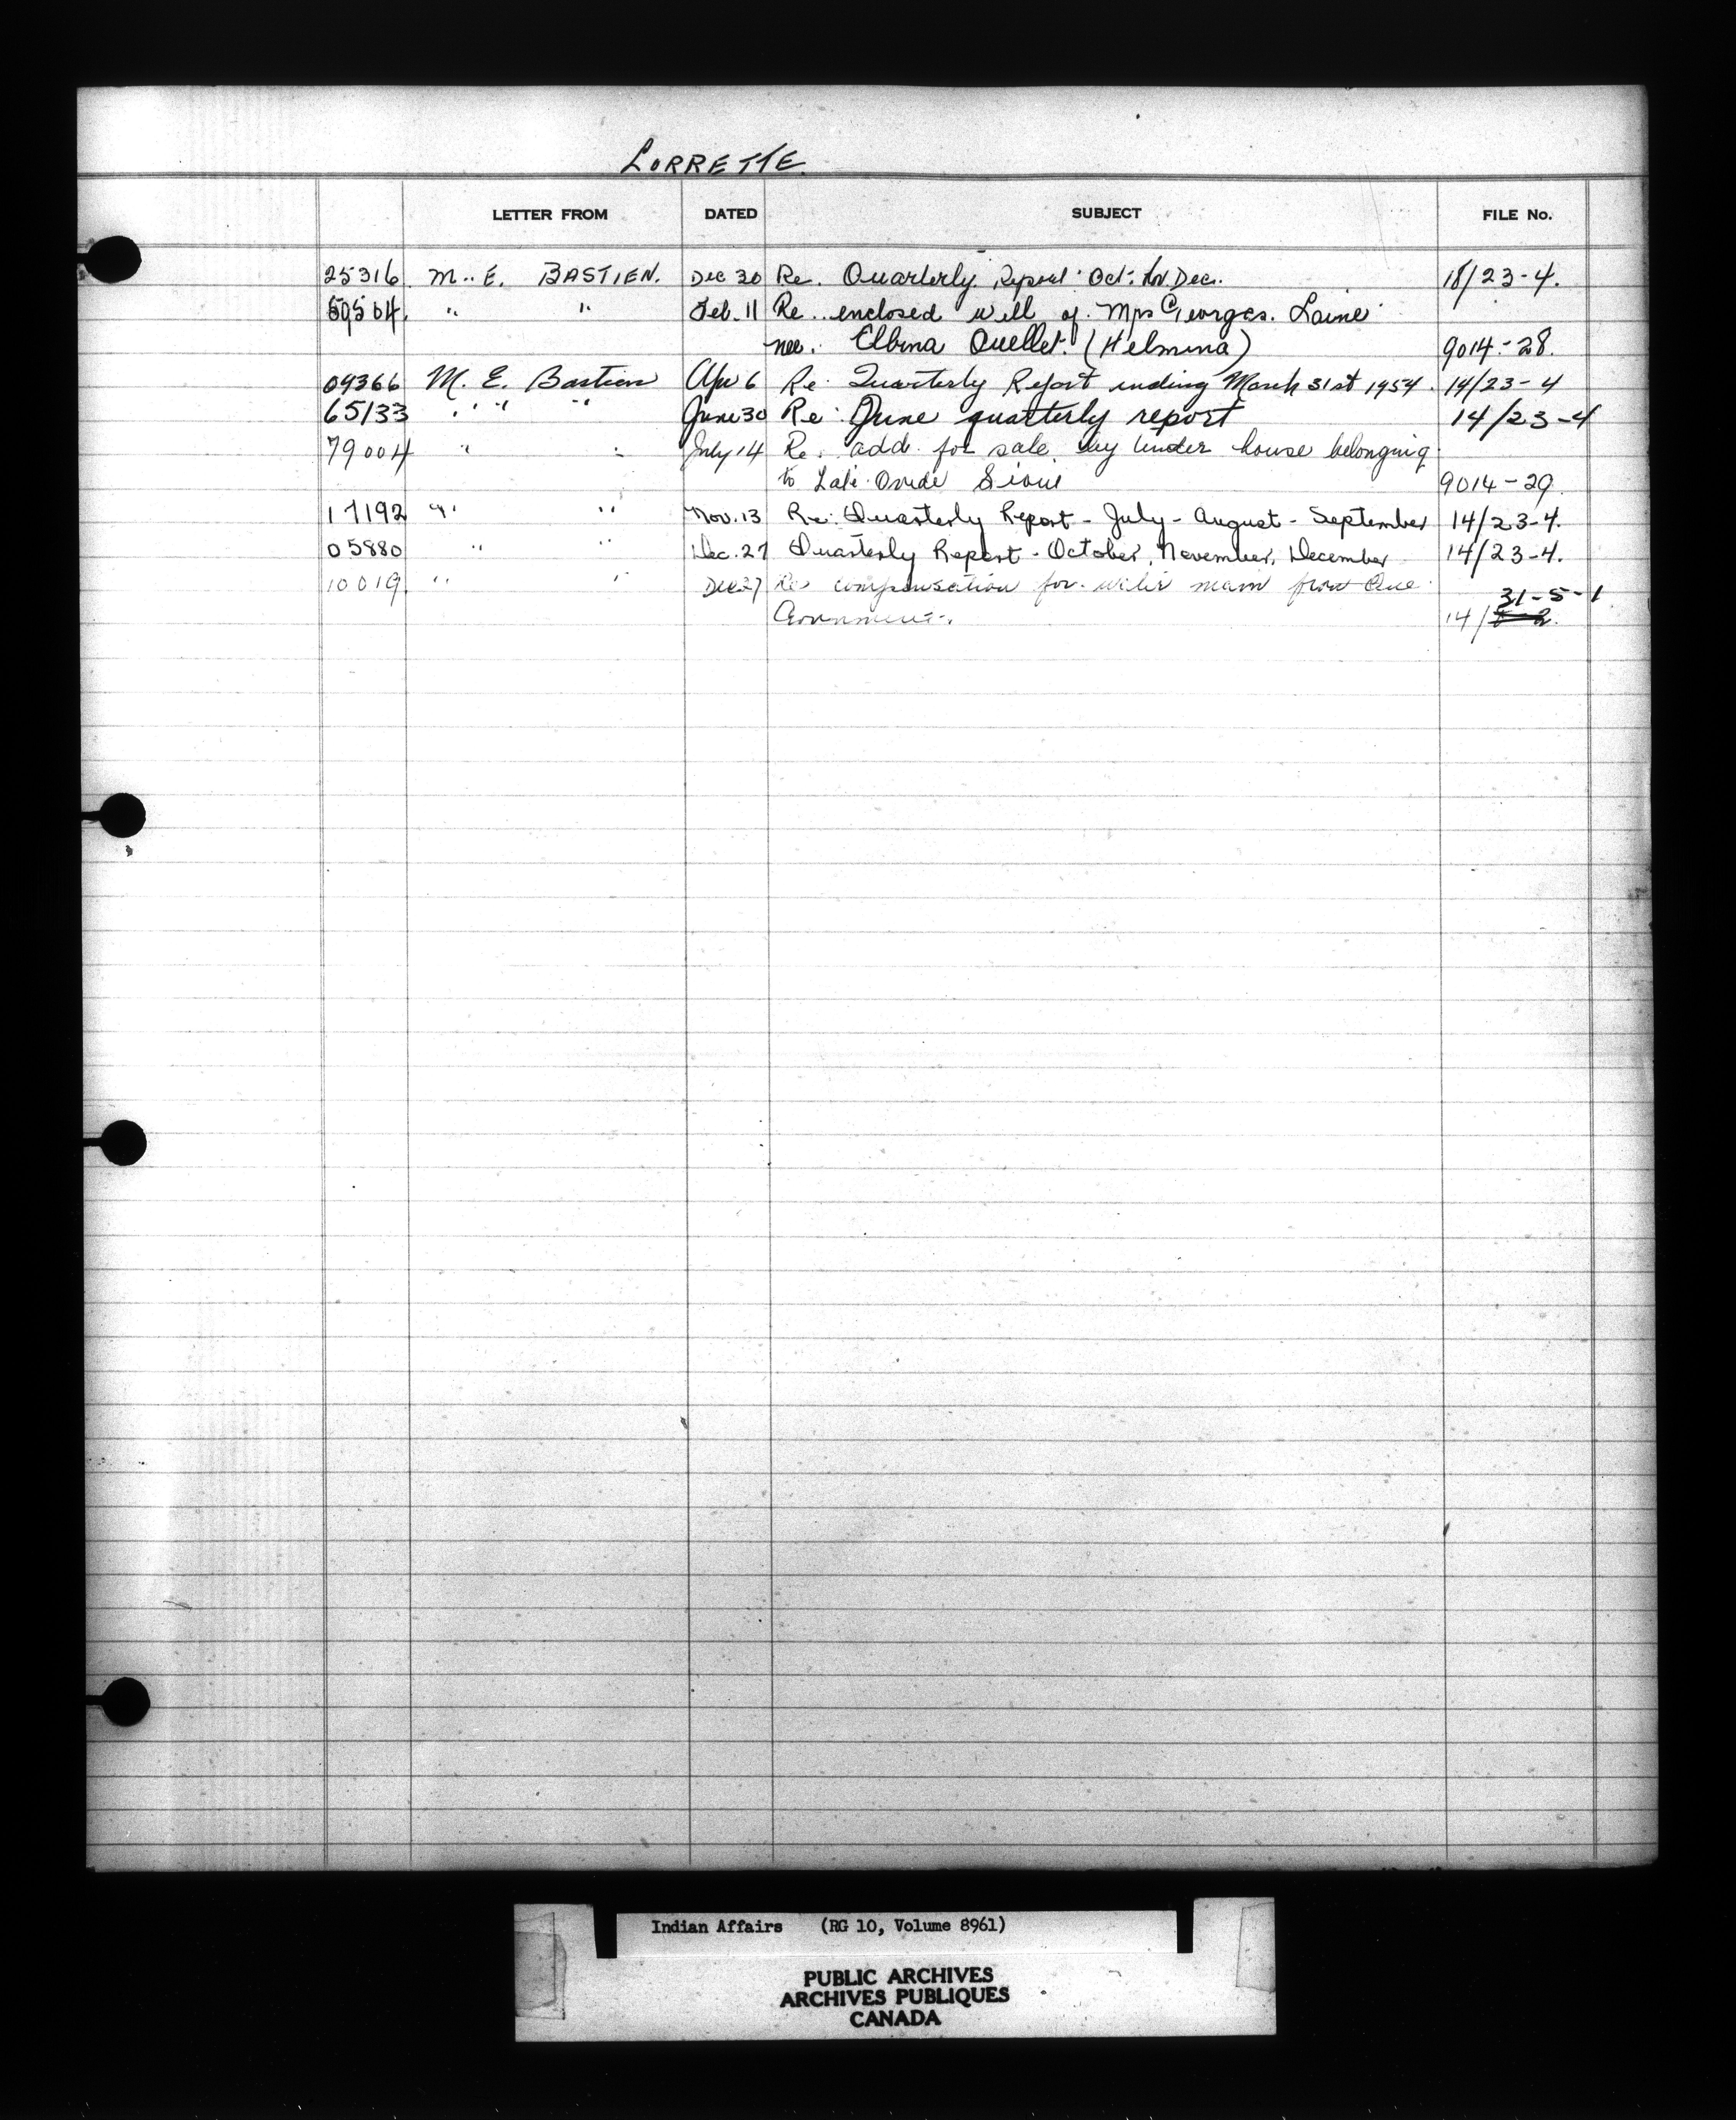 LORRETTE
LETTER FROM DATED SUBJECT FILE No.
25316 M. E. BASTIEN. Dec 30 Re. Quarterly Report Oct. Nov. Dec. 18/23-4.
" " Feb. 11 Re. enclosed will of Mrs Georges. Laine
nee. Elbina Ouellet. (Helmina) 9014-28.
09366 M. E. Bastien Apr 6 Re: Quarterly Report ending March 31st 1954. 14/23-4
65133 " " " June 30 Re: June quarterly report 14/23-4
79004 " " July 14 Re. add. for sale by tinder house belonging
to Late Ovide Sioui 9014-29.
17192 " " Nov. 13 Re: Quarterly Report - July - August - September 14/23-4.
05880 " " Dec. 27 Quarterly Report - October, November, December 14/23-4.
10019. " " Dec 27 Re compensation for water main from Que
Government. 14/ 31-5-1
Indian Affairs (RG 10, Volume 8961)
PUBLIC ARCHIVES
ARCHIVES PUBLIQUES
CANADA